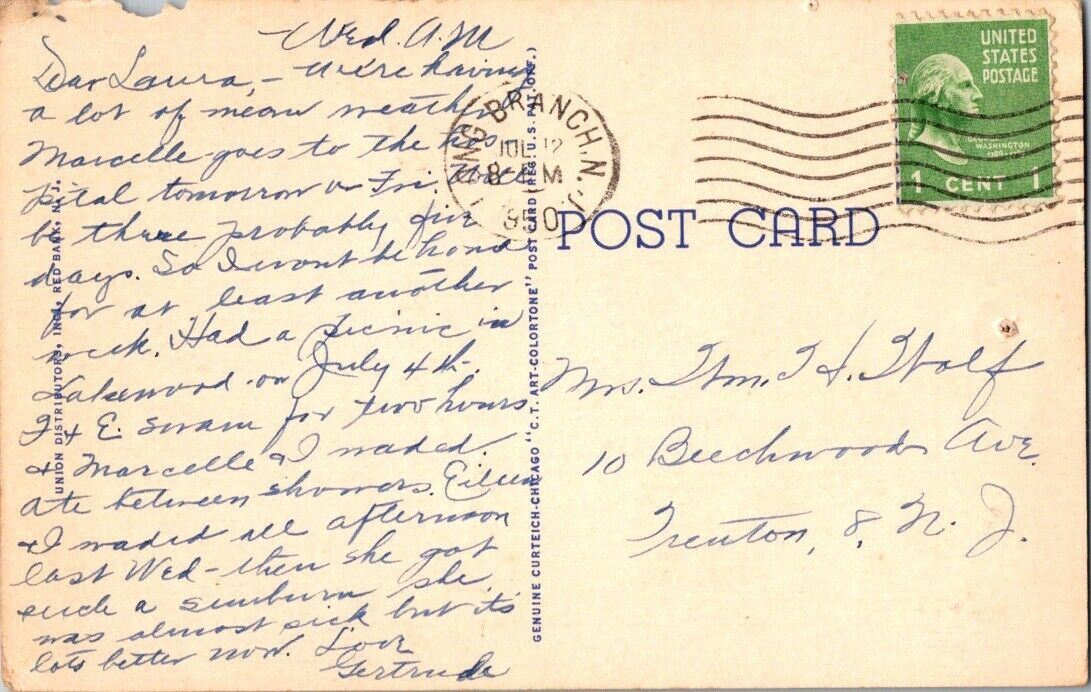 Wed. A.M
Dear Laura, - We're having
a lot of mean weather.
Marcelle goes to the hos
pital tomorrow or Fri. Will
be there probably five
days. So I wont be home
for at least another
week. Had a picnic in
Lakewood on July 4th.
& E. swam for two hours
& Marcelle & I waded.
Ate between showers. Eileen
& I waded all afternoon
last Wed - then she got
such a sunburn she
was almost sick but its
lots better now. Love
Gertrude
UNION DISTRIBUTORS, INC., RED BANK, N. J.
GENUINE CURTEICH-CHICAGO "C.T. ART-COLORTONE" POST CARD (REG. U.S. PAT. OFF.)
LONG BRANCH, N.J.
JUL 12
8 - M
1950
UNITED
STATES
POSTAGE
WASHINGTON
1 CENT 1
POST CARD
Mrs. Wm. H. Wolf
10 Beechwood Ave.
Trenton, 8, N. J.